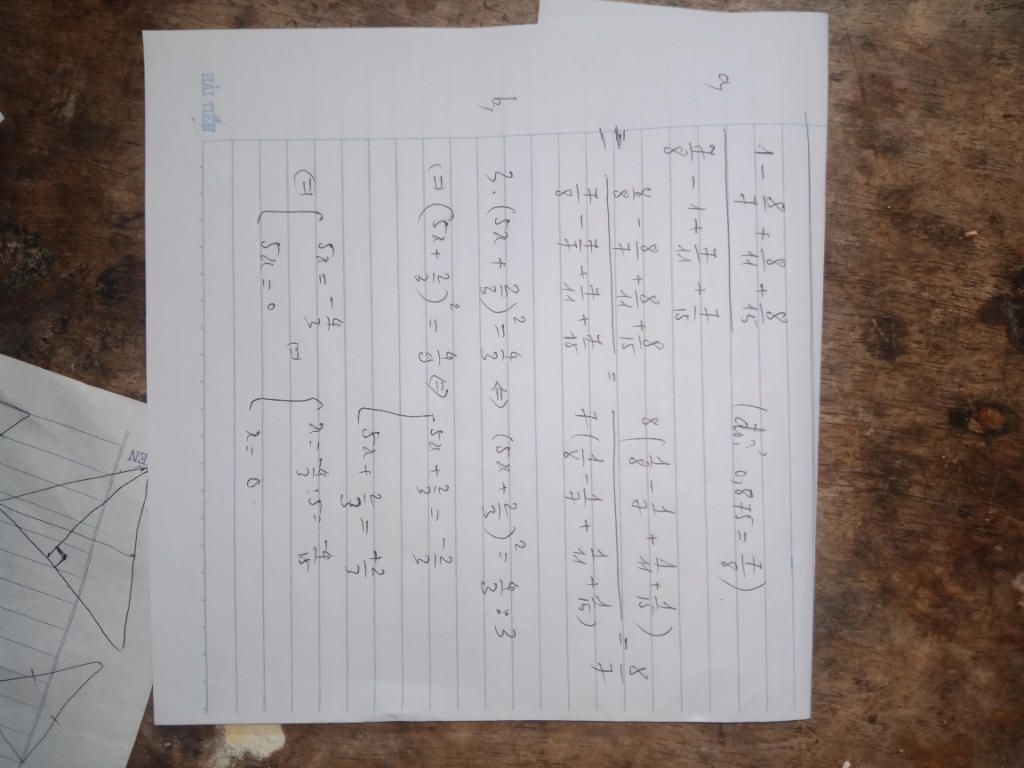 a, (1 - 8/7 + 8/11 + 8/15) / (7/8 - 1 + 7/11 + 7/15) (đổi 0,875 = 7/8)
= (8/8 - 8/7 + 8/11 + 8/15) / (7/8 - 7/7 + 7/11 + 7/15) = 8(1/8 - 1/7 + 1/11 + 1/15) / 7(1/8 - 1/7 + 1/11 + 1/15) = 8/7
b, 3.(5x + 2/3)² = 4/3 (=) (5x + 2/3)² = 4/3 : 3
(=) (5x + 2/3)² = 4/9 (=) [ 5x + 2/3 = -2/3
5x + 2/3 = +2/3
(=) [ 5x = -4/3 (=) [ x = -4/3 : 5 = -4/15
5x = 0 x = 0.
HẢI TIẾN
EN